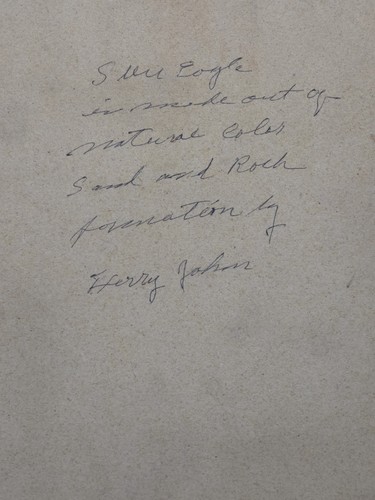 Sun Eagle
is made out of
natural Color
Sand and Rock
formation by
Herry Johnn